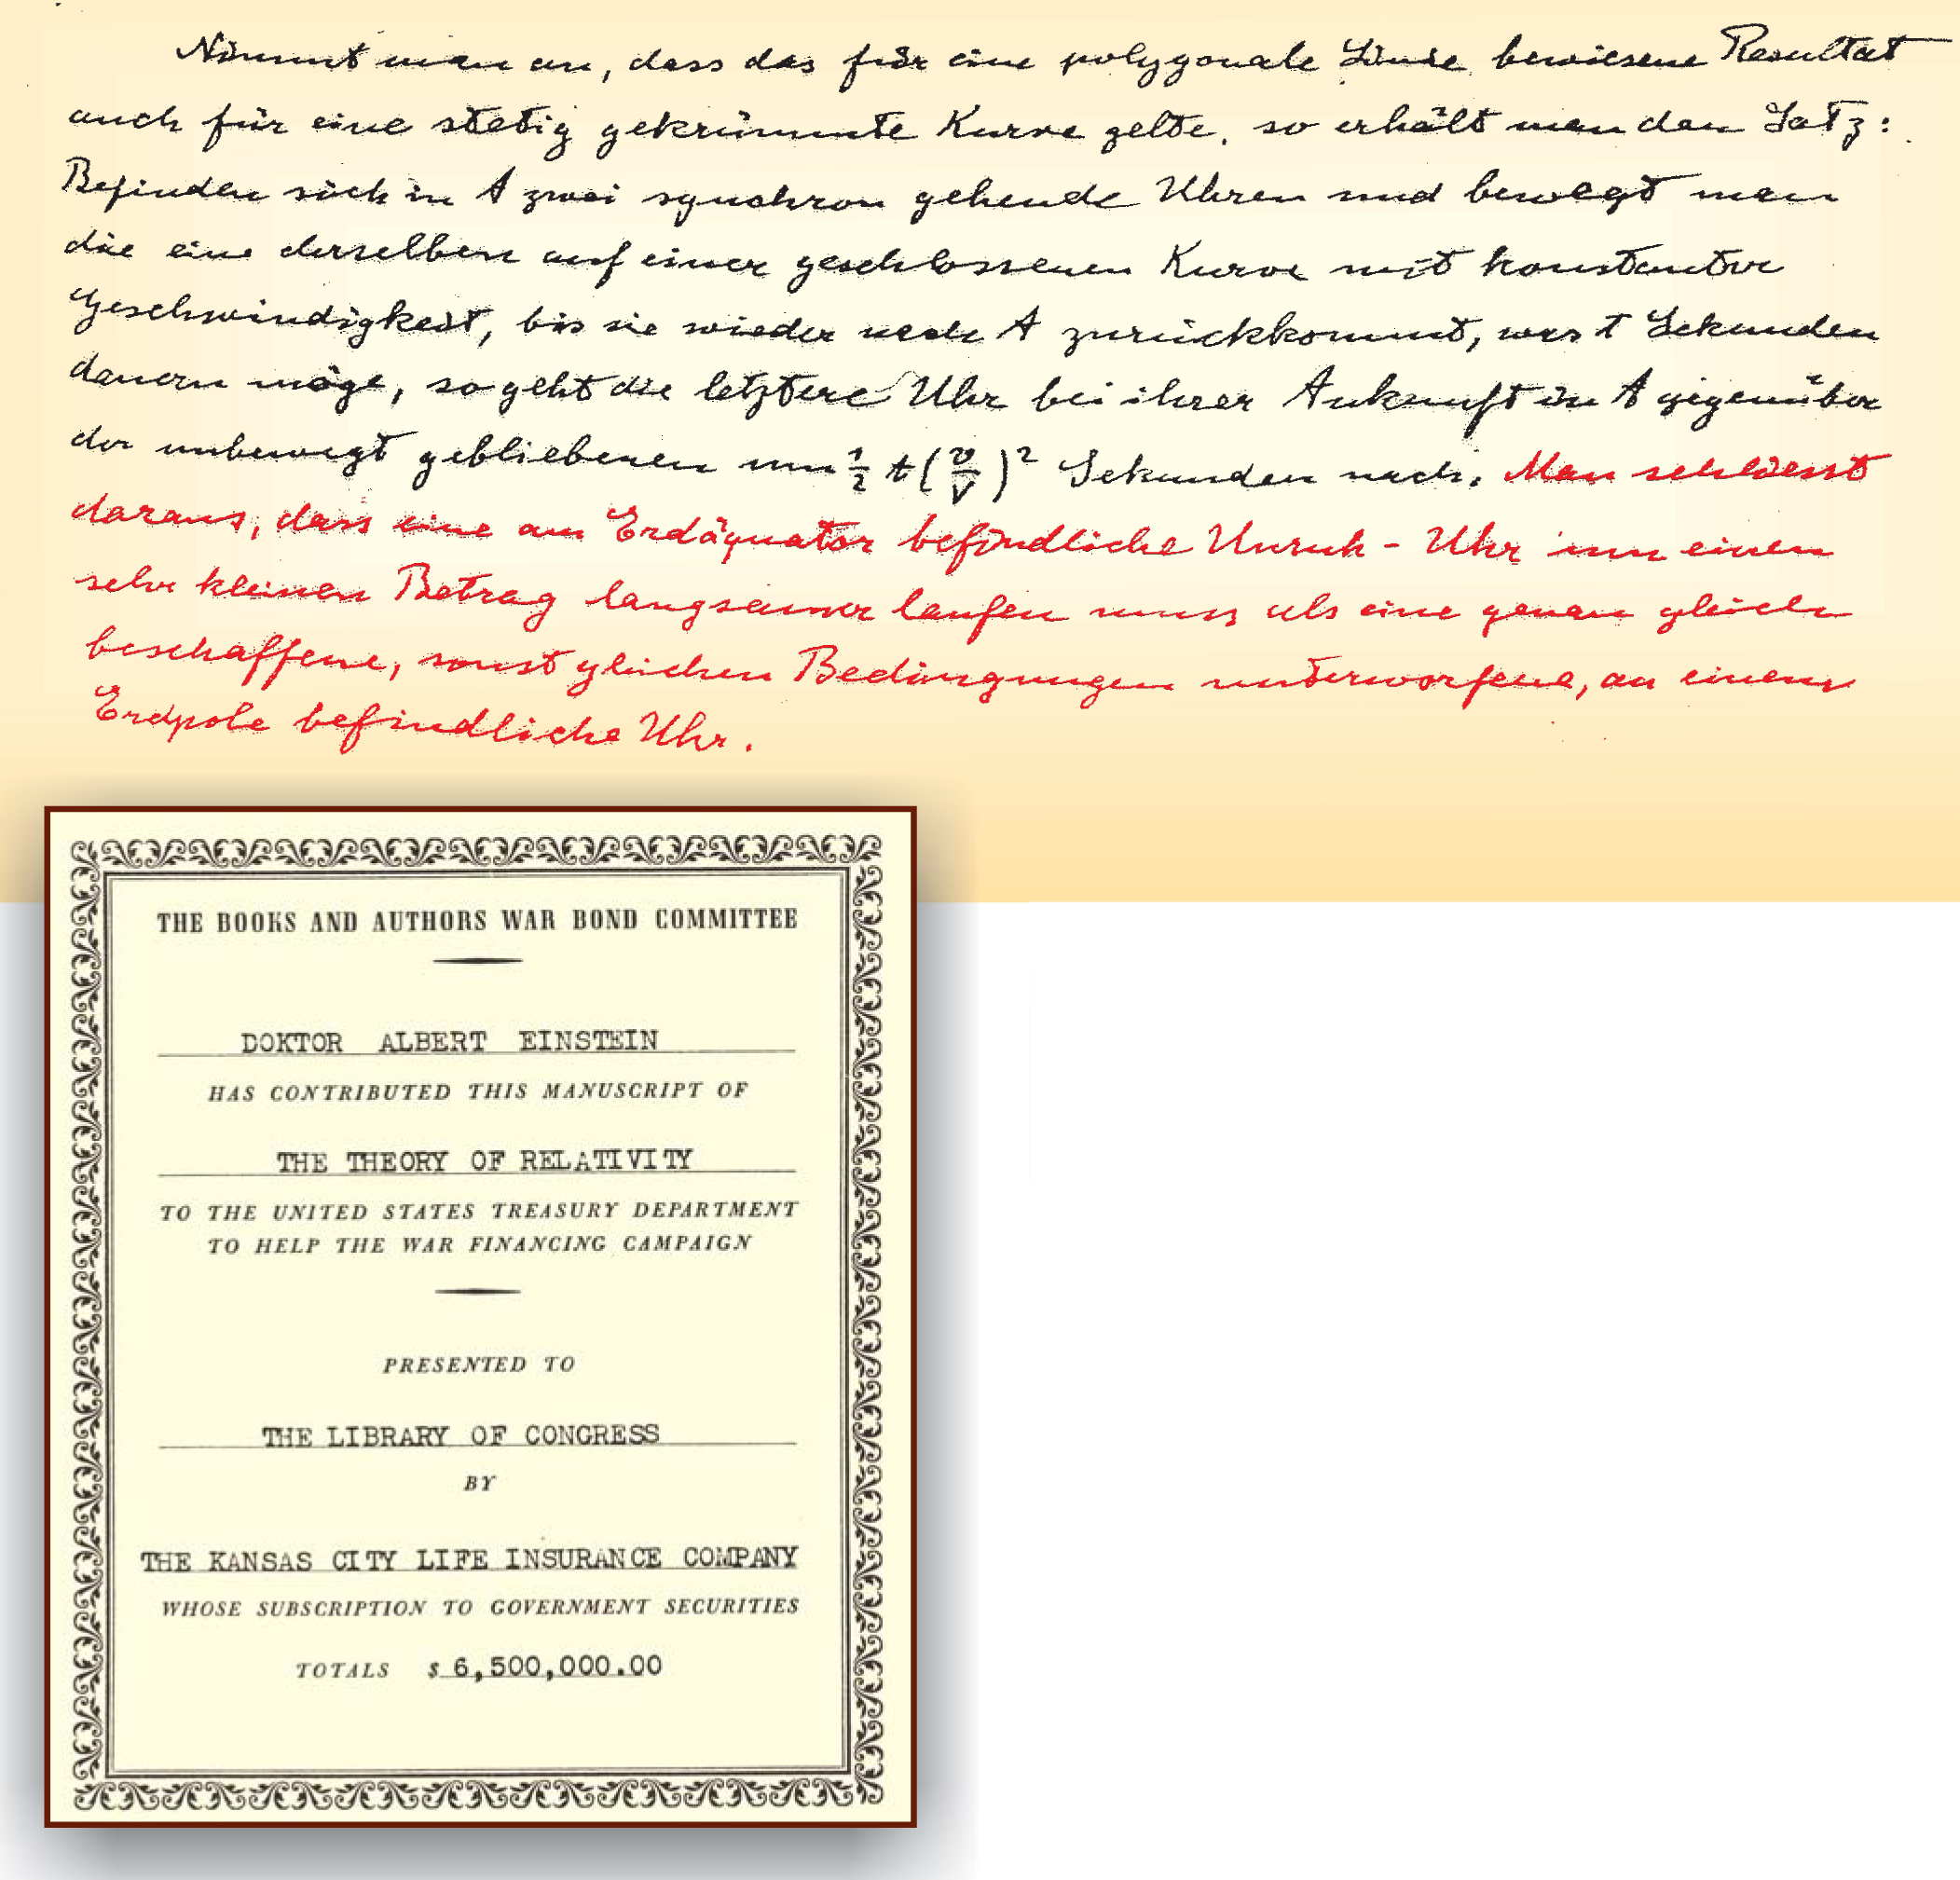 Nimmt man an, dass das für eine polygonale Linie bewiesene Resultat
auch für eine stetig gekrümmte Kurve gelte, so erhält man den Satz:
Befinden sich in A zwei synchron gehende Uhren und bewegt man
die eine derselben auf einer geschlossenen Kurve mit konstanter
Geschwindigkeit, bis sie wieder nach A zurückkommt, was t Sekunden
dauern möge, so geht die letztere Uhr bei ihrer Ankunft in A gegenüber
der unbewegt gebliebenen um 1/2 t (v/V)² Sekunden nach. Man schliesst
daraus, dass eine am Erdäquator befindliche Unruh-Uhr um einen
sehr kleinen Betrag langsamer laufen muss als eine genau gleich
beschaffene, sonst gleichen Bedingungen unterworfene, an einem
Erdpole befindliche Uhr.
THE BOOKS AND AUTHORS WAR BOND COMMITTEE
DOKTOR ALBERT EINSTEIN
HAS CONTRIBUTED THIS MANUSCRIPT OF
THE THEORY OF RELATIVITY
TO THE UNITED STATES TREASURY DEPARTMENT
TO HELP THE WAR FINANCING CAMPAIGN
PRESENTED TO
THE LIBRARY OF CONGRESS
BY
THE KANSAS CITY LIFE INSURANCE COMPANY
WHOSE SUBSCRIPTION TO GOVERNMENT SECURITIES
TOTALS $ 6,500,000.00